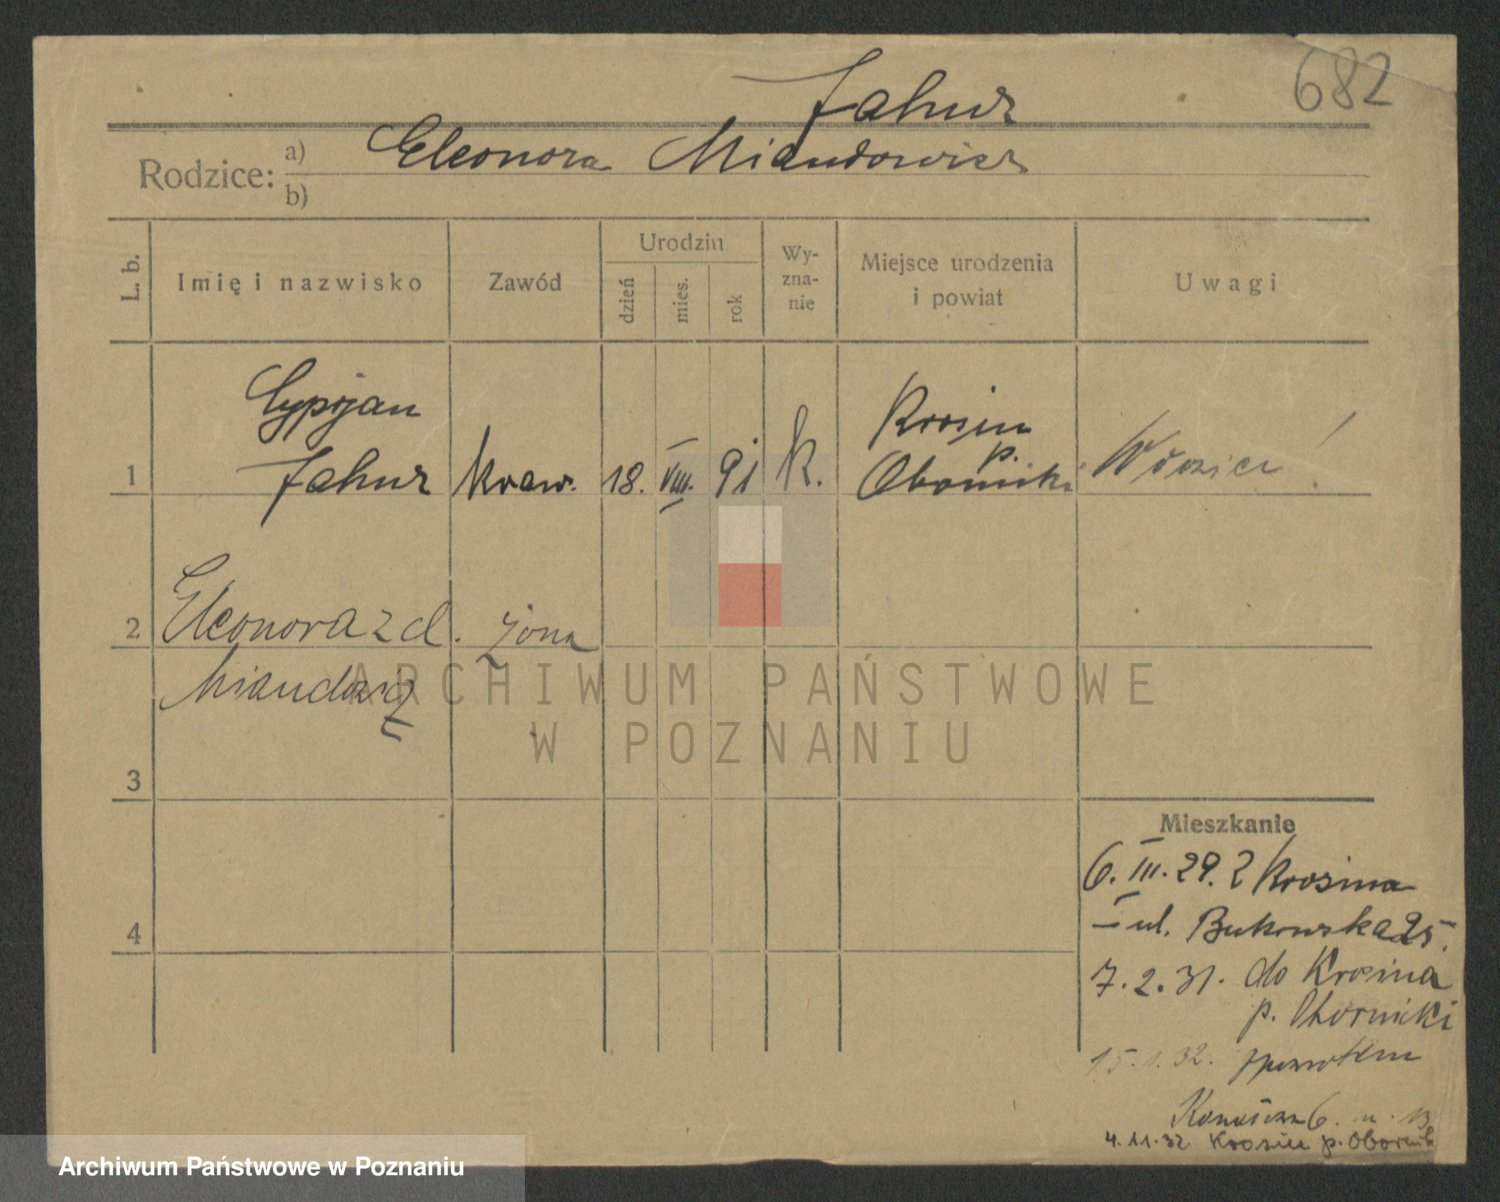 682
Jahnz
Rodzice: a) Eleonora
b)
L. b.
Imię i nazwisko
Zawód
Urodzin
dzień
mies.
rok
Wy-
zna-
nie
Miejsce urodzenia
i powiat
Uwagi
1
Cyprjan
Jahnz
kraw.
18. VIII. 91
k.
Krosin
p.
Oborniki
2
Eleonora z d. żona
3
4
Mieszkanie
6. III. 29. z Krosina
ul. Bukowska 25.
7. 2. 31. do Krosina
p. Oborniki
15. 1. 32. zpowrotem
4.11.32 Krosin p. Obornik
ARCHIWUM PAŃSTWOWE
W POZNANIU
Archiwum Państwowe w Poznaniu